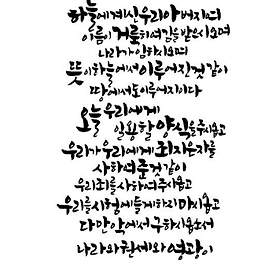 하늘에 계신 우리 아버지여
이름이 거룩히 여김을 받으시오며
나라가 임하시오며
뜻이 하늘에서 이루어진 것 같이
땅에서도 이루어지이다
오늘 우리에게
일용할 양식을 주시옵고
우리가 우리에게 죄 지은 자를
사하여 준 것 같이
우리 죄를 사하여 주시옵고
우리를 시험에 들게 하지 마시옵고
다만 악에서 구하시옵소서
나라와 권세와 영광이